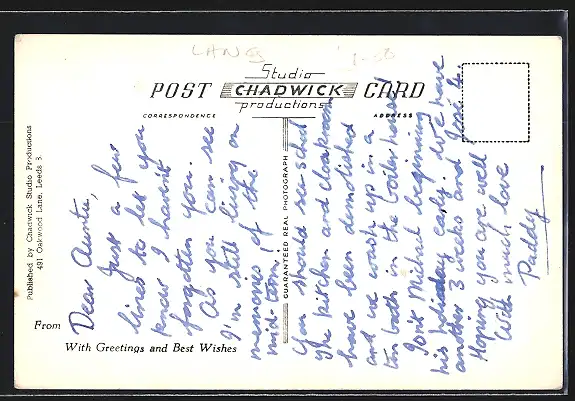 LANCS
Studio
POST CHADWICK CARD
productions
CORRESPONDENCE
ADDRESS
Published by Chadwick Studio Productions
491 Oakwood Lane, Leeds 8.
GUARANTEED REAL PHOTOGRAPH
Dear Auntie,
Just a few
lines to let you
know I haven't
forgotten you.
As you can see
I'm still living on
memories of the
mid-term!
You should see sched
the kitchen and cloakroom
have been demolished
and we wash up in a
tin bath in the boilerhouse!
Got Michael beginning
his holiday early. We have
another 3 weeks and
Hoping you are well
With much love
Paddy
From
With Greetings and Best Wishes